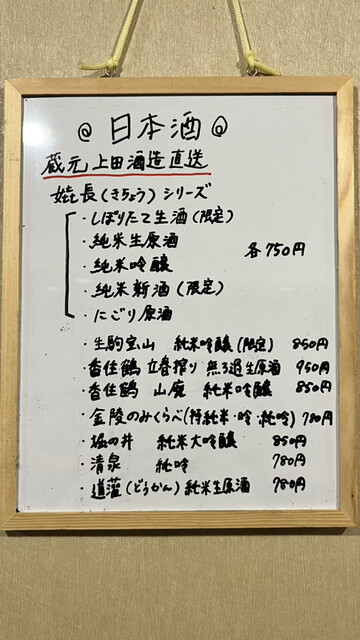 ◎ 日本酒 ◎
蔵元 上田酒造直送
嬉長(きちょう)シリーズ
・しぼりたて生酒(限定)
・純米生原酒
各750円
・純米吟醸
・純米新酒(限定)
・にごり原酒
・生駒宝山 純米吟醸(限定) 850円
・香住鶴 立春搾り 無ろ過生原酒 950円
・香住鶴 山廃 純米吟醸 850円
・金陵のみくらべ(特純米・吟・純吟) 780円
・堀の井 純米大吟醸 850円
・清泉 純吟 780円
・道灌(どうかん)純米生原酒 780円